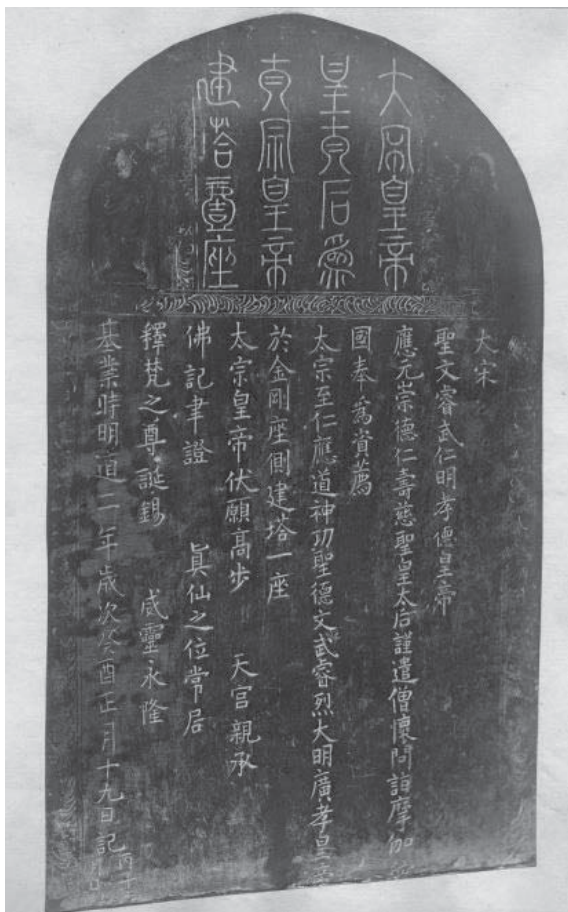 大宋皇帝
皇太后為
太宗皇帝
建塔壹座
大宋
聖文睿武仁明孝德皇帝
應元崇德仁壽慈聖皇太后謹遣僧懷問詣摩伽
國奉為資薦
太宗至仁應道神功聖德文武睿烈大明廣孝皇帝
於金剛座側建塔一座
太宗皇帝伏願高步 天宮親承
佛記聿證 真仙之位常居
釋梵之尊誕錫 威靈永隆
基業時明道二年歲次癸酉正月十九日記